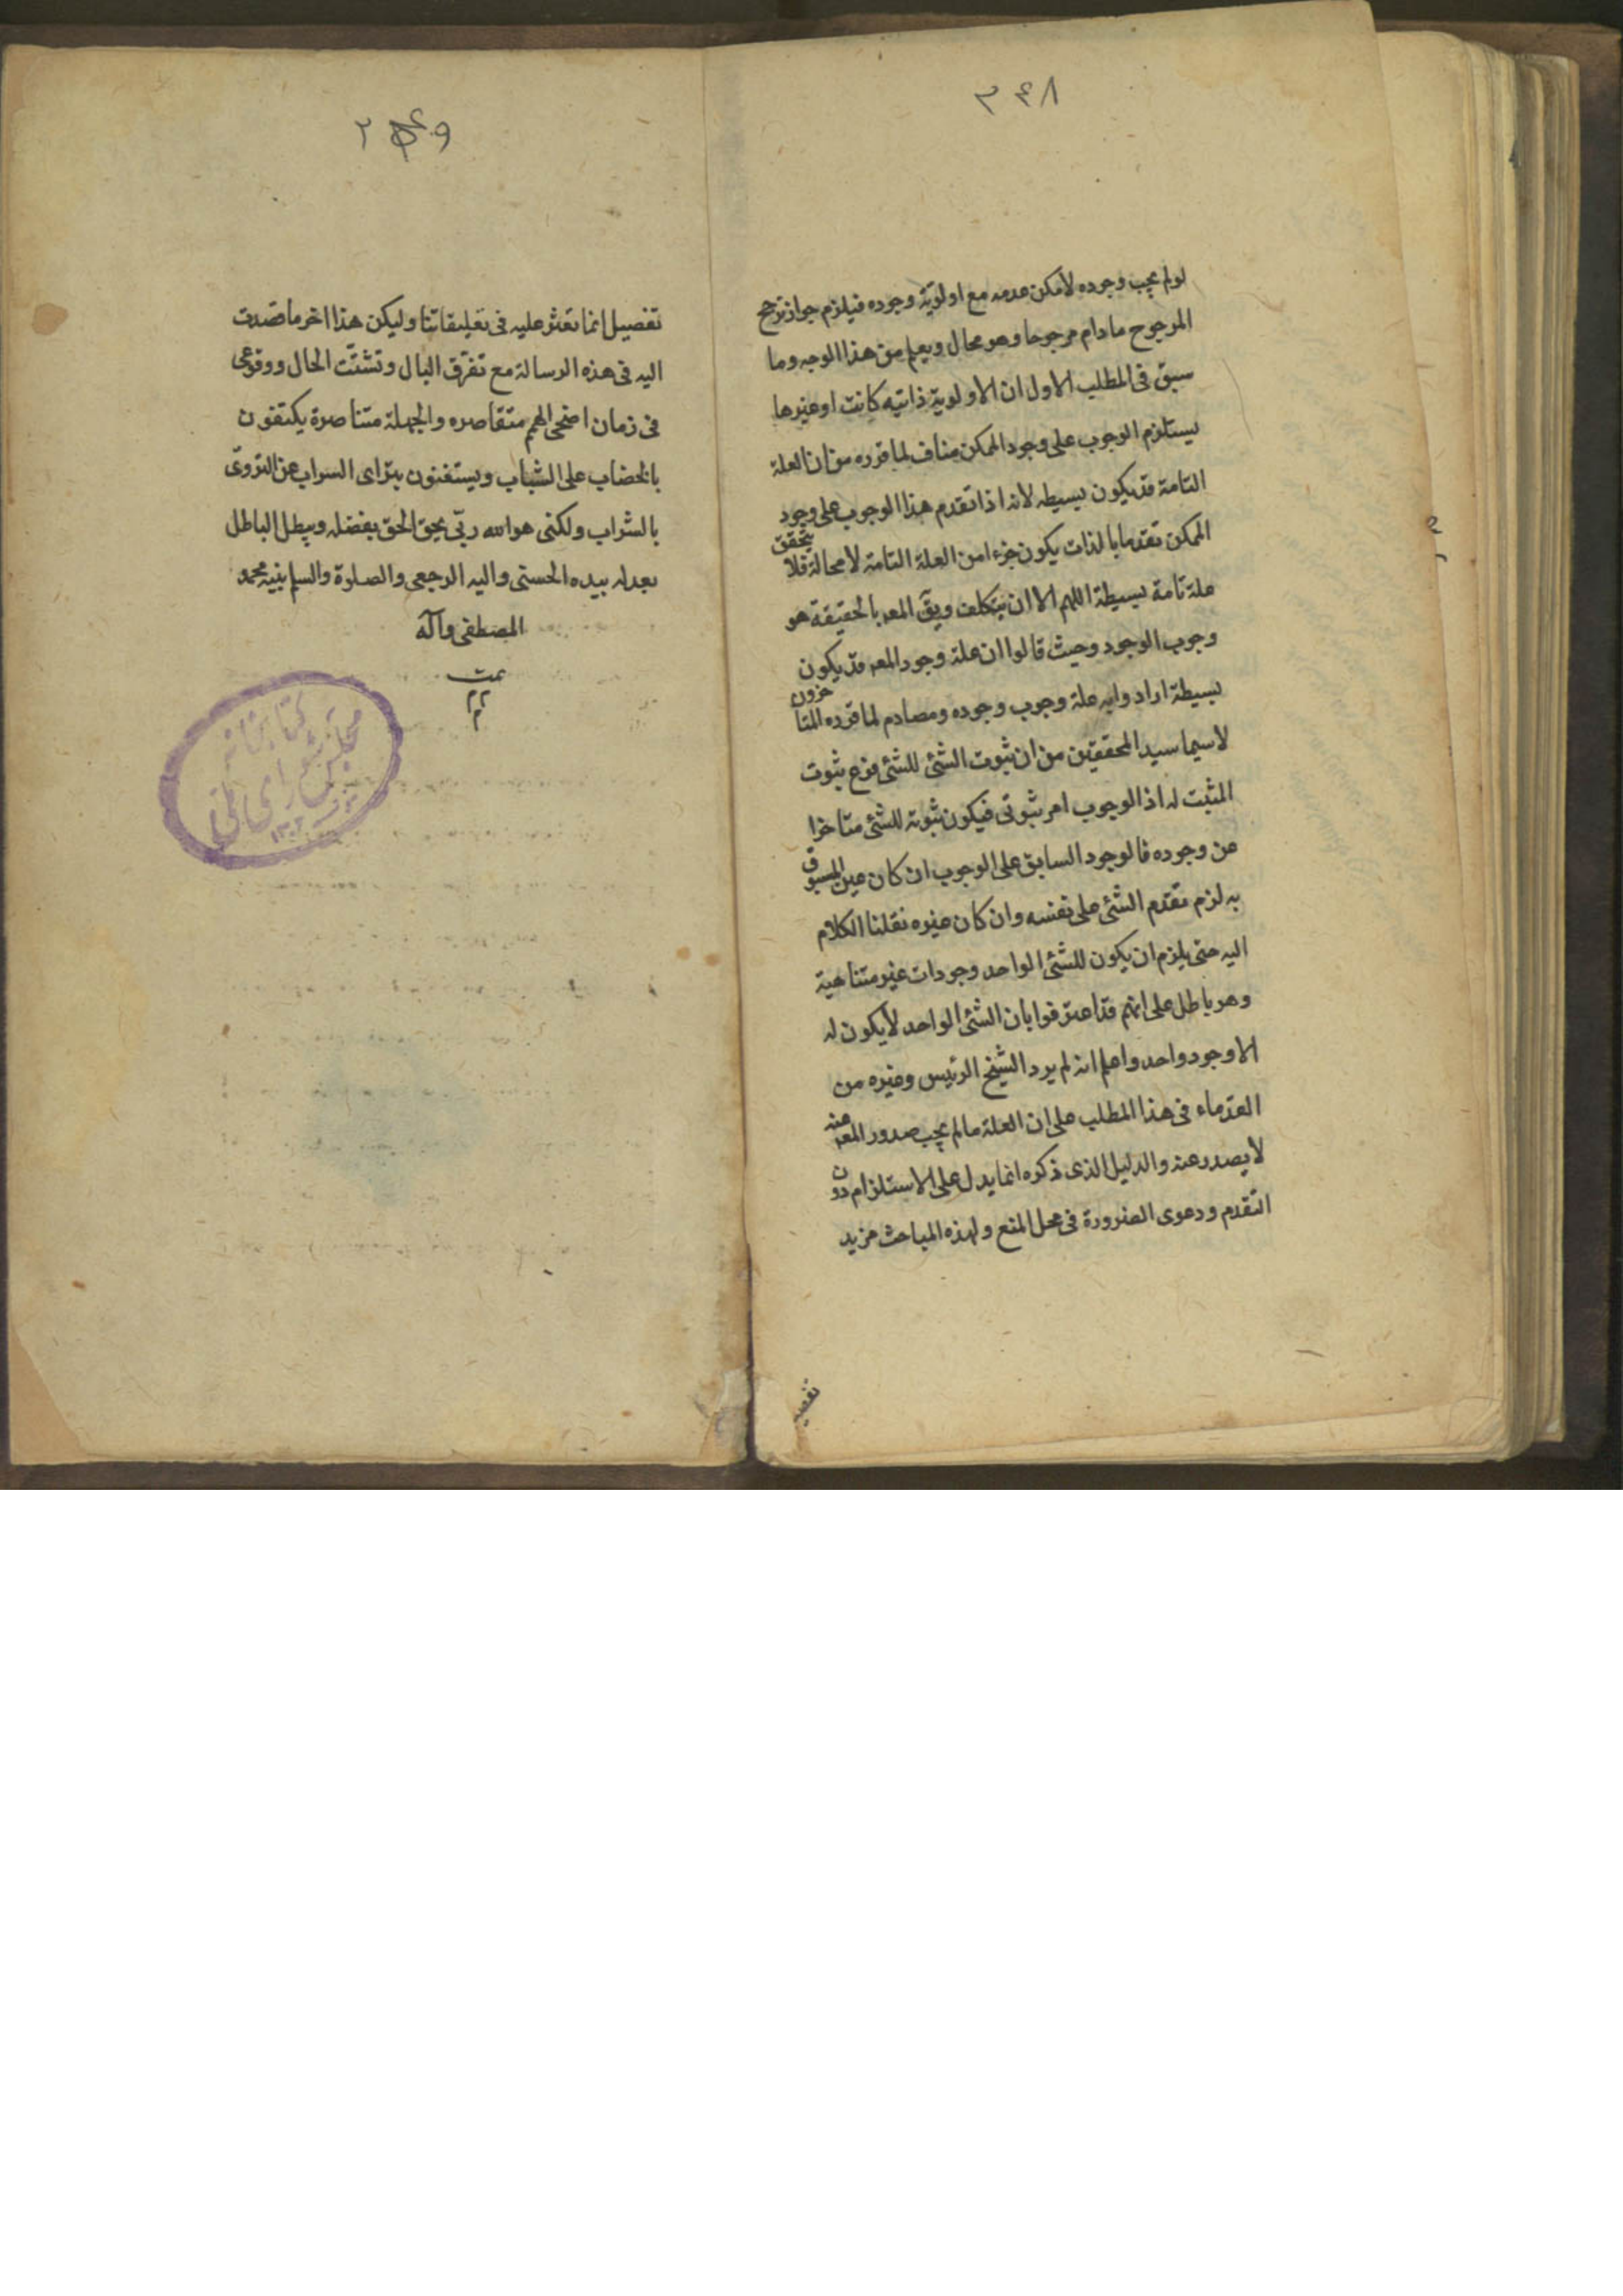 ٣٤٨
لو لم يجب وجوده لأمكن عدمه مع اولويّة وجوده فيلزم جواز ترجح
المرجوح مادام مرجوحا وهو محال ويعلم من هذا الوجه وما
سبق فى المطلب الاول ان الاولوية ذاتيه كانت او غيرها
يستلزم الوجوب على وجود الممكن مناف لما قرره من ان العلة
التامة قد يكون بسيطه لانه اذا تقدم هذا الوجوب على وجود
الممكن تقدما بالذات يكون جزءا من العلة التامة لا محالة فلا يتحقق
علة تامة بسيطة اللهم الا ان يتكلف ويقَ المعہ بالحقيقة هو
وجوب الوجود وحيث قالوا ان علة وجود المعہ قد يكون
بسيطة ارادوا به علة وجوب وجوده ومصادم لما قرره المتاخرون
لاسيما سيد المحققين من ان ثبوت الشئ للشئ فرع ثبوت
المثبت له اذ الوجوب امر ثبوتى فيكون ثبوته للشئ متاخرا
عن وجوده فالوجود السابق على الوجوب ان كان عين المسبوق
به لزم تقدم الشئ على نفسه وان كان غيره نقلنا الكلام
اليه حتى يلزم ان يكون للشئ الواحد وجودات غير متناهية
وهو باطل على انهم قد اعترفوا بان الشئ الواحد لا يكون له
الا وجود واحد واعلم انه لم يرد الشيخ الرئيس وغيره من
القدماء فى هذا المطلب على ان العلة مالم يجب صدور المعہ عنه
لا يصدر عنه والدليل الذى ذكره انما يدل على الاستلزام دون
التقدم ودعوى الضرورة فى محل المنع ولهذه المباحث مزيد
تفصيل
تفصيل انما تعثر عليه فى تعليقاتنا وليكن هذا اخر ما قصدت
اليه فى هذه الرسالة مع تفرّق البال وتشتّت الحال ووقوعى
فى زمان اضحى الهمم متقاصره والجهلة متناصرة يكتفون
بالخضاب على الشباب ويستغنون بترأى السراب عن التروّى
بالشراب ولكنى هو الله ربّى يحق الحق بفضله ويبطل الباطل
بعدله بيده الحسنى واليه الرجعى والصلوة والسلم بنبيه محمد
المصطفى وآله
تمت
كتابخانه
مجلس شوراى ملى
١٣٠٢